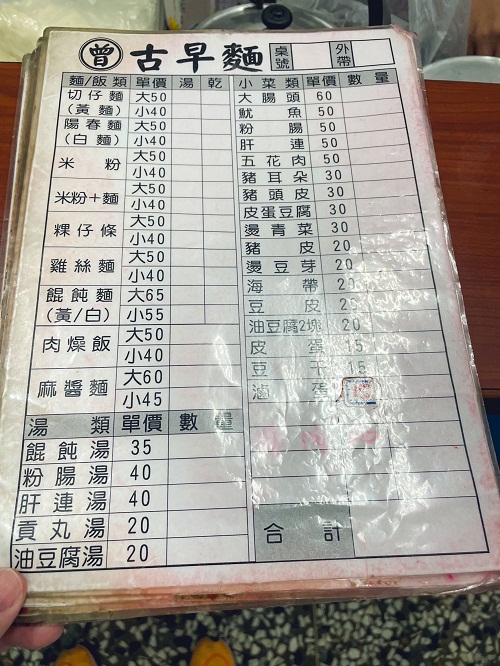 曾 古早麵 桌號 外帶
麵/飯類 單價 湯 乾
切仔麵 大50
(黃麵) 小40
陽春麵 大50
(白麵) 小40
米粉 大50
小40
米粉+麵 大50
小40
粿仔條 大50
小40
雞絲麵 大50
小40
餛飩麵 大65
(黃/白) 小55
肉燥飯 大50
小40
麻醬麵 大60
小45
湯類 單價 數量
餛飩湯 35
粉腸湯 40
肝連湯 40
貢丸湯 20
油豆腐湯 20
小菜類 單價 數量
大腸頭 60
魷魚 50
粉腸 50
肝連 50
五花肉 50
豬耳朵 30
豬頭皮 30
皮蛋豆腐 30
燙青菜 30
豬皮 20
燙豆芽 20
海帶 20
豆皮 20
油豆腐2塊 20
皮蛋 15
豆干 15
滷蛋
合計